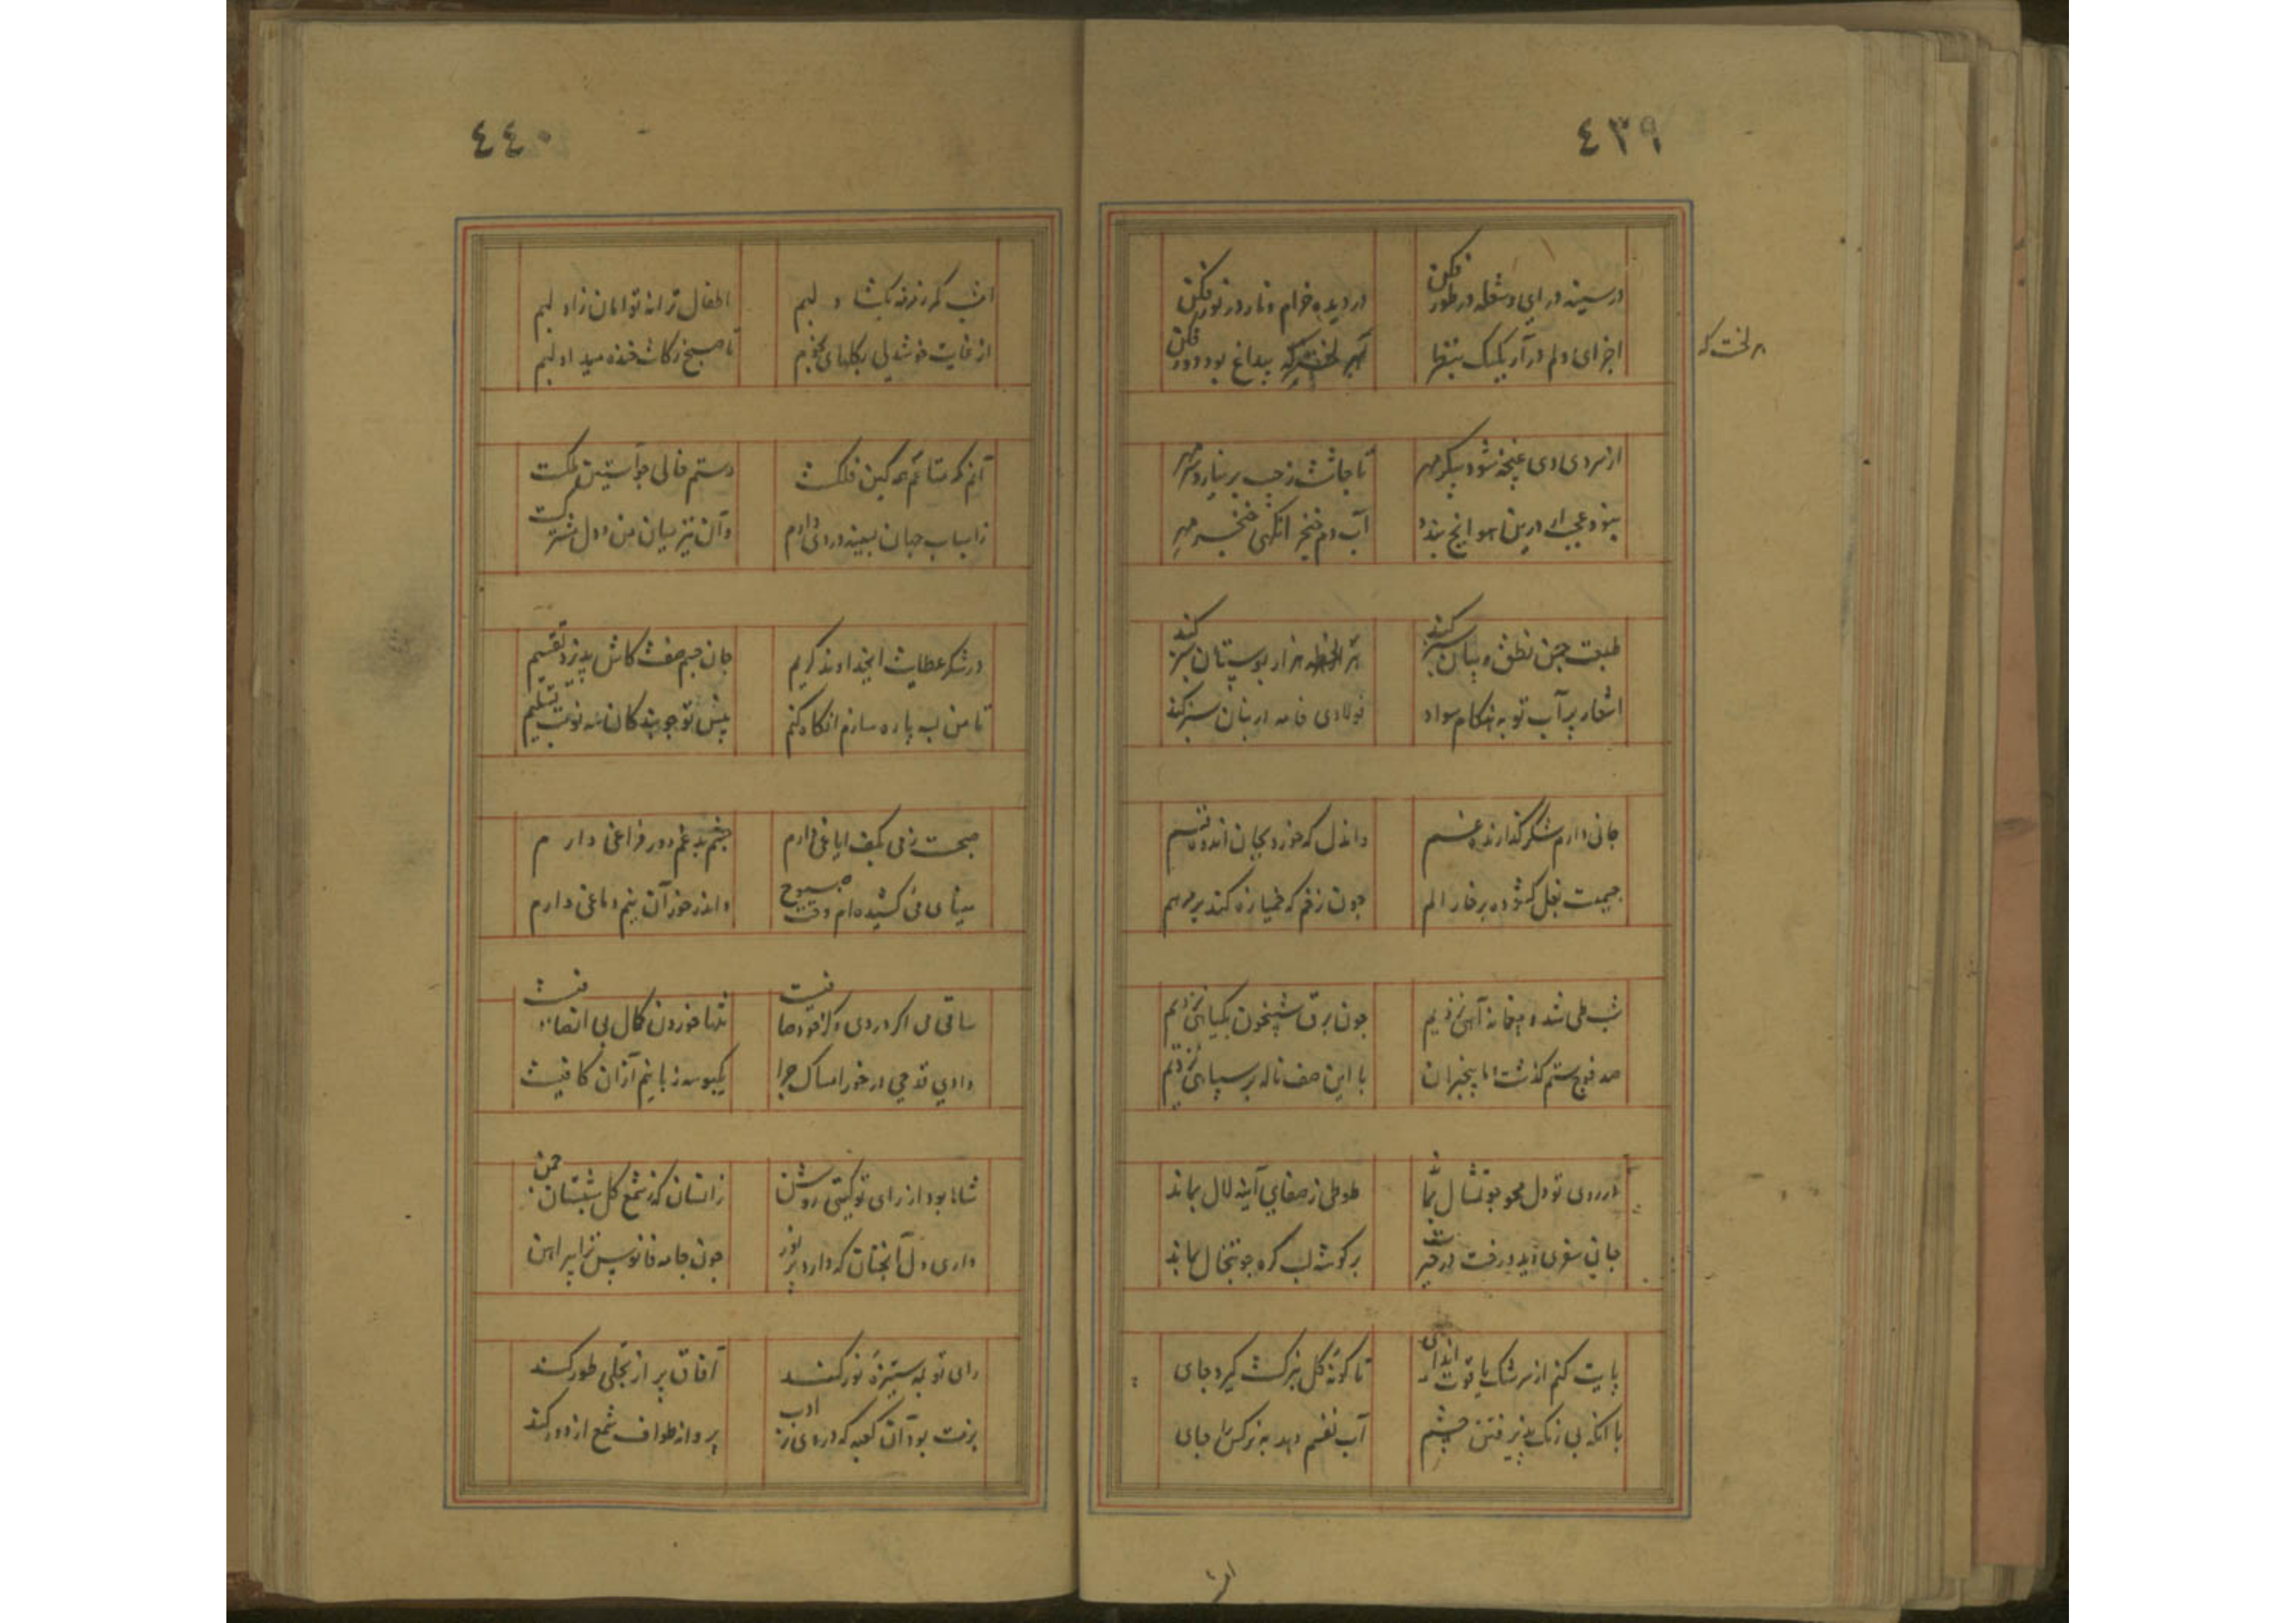 ٤٣٩
در سینه در ای و شعله در طور فکن
در دیده خرام و نار در نور فکن
اجزای دلم در آر یکیک بنظر
هر لخت که بیداغ بود دور فکن
هر لخت که
از سردی دی غنچه شود پیکر مهر
تا چاشت ز جیب بر نیارد سر مهر
نبود عجب ار درین هوا یخ بندد
آب دم خنجر
طبعت چمن نطق و بیان سبز کند
هر لحظه هزار بوستان سبز کند
اشعار پر آب تو به هنکام سواد
فولادی خامه در بنان سبز کند
جانی دارم شکر کذارنده غم
واندل که خورد بجان اندوه قسم
جمعیت بغل کشوده بر خار الم
چون زخم که خمیازه کند بر مرهم
شب طی شد و بیخانه آهی نزدیم
چون برق شبیخون بکیاهی نزدیم
صد فوج ستم کذشت و ما بیخبران
با این صف ناله بر سپاهی نزدیم
در روی تو دل محو چو تمثال بماند
طوطی ز صفای آینه لال بماند
جان سفری دید و رفت در حیرت شد
بر کوشه لب کره چو تبخال بماند
پایت کنم از سرشک یاقوت اندای
تا کونه کل بنرکست کیرد جای
با آنکه بی رنک پذیرفتن چشم
آب نفسم دهد به نرکس جای
امشب
٤٤٠
امشب که ز مژده بکشاد لبم
اطفال ترانه توامان زاد لبم
از غایت خوشدلی بکلهای
تا صبح زکات خنده میداد لبم
آنم که متاعم همه کین فلکست
دستم خالی چو آستین ملکست
ز اسباب جهان بسینه دردی دارم
وآن نیز میان من و دل مشترکست
در شکر عطایت ایخداوند کریم
جان جسم صفت کاش پذیرد تقسیم
تا من لب پاره سازم انکاه کنم
پیش تو چو بندکان سه نوبت تسلیم
صبحست ز می بکف ایاغی دارم
چشم بد غم دور فراغی دارم
مینای می کشیده ام وقت صبوح
واندر خور آن نیم دماغی دارم
ساقی می اکر دردی و کر خود صافیست
تنها خوردن کمال بی انصافیست
دادی قدحی در خور امساک چرا
یکبوسه ز بانیم از آن کافیست
شاها بود از رای تو کیتی روشن
زانسان که ز شمع کل شبستان چمن
داری دل آنچنان که دارد پر نور
چون جامه فانوس ترا پیراهن
رای تو به ستیزه نور کند
آفاق پر از تجلی طور کند
بزمت بود آن کعبه که در وی ز ادب
پروانه طواف شمع از دور کند